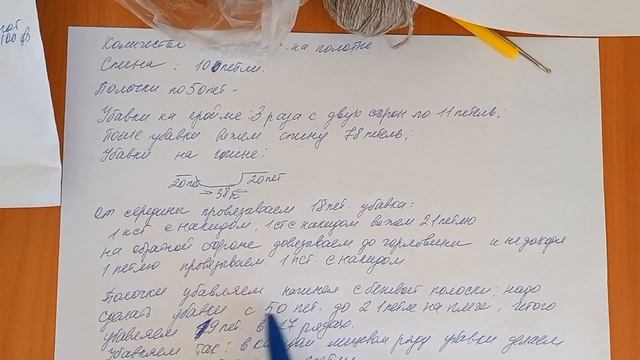 100
Количество на полотне.
Спина: 100 петли.
Полочки по 50 пет.
Убавки на пройме: 3 раза с двух сторон по 11 петель;
После убавки вяжем спину 78 петель;
Убавки на спине:
20 пет 20 пет
38
От середины провязываем 18 пет. убавка:
1 пст с накидом, 1 ст с накидом вяжем 21 петлю
на обратной стороне довязываем до горловины и не доходя
1 петлю провязываем 1 пст. с накидом
Полочки убавляем начиная с полоски; надо
сделать убавки с 50 пет. до 21 петле на плече, итого
убавляем 9 пет. в 17 рядах.
Убавляем так: в каждом лицевом ряду убавки делаем